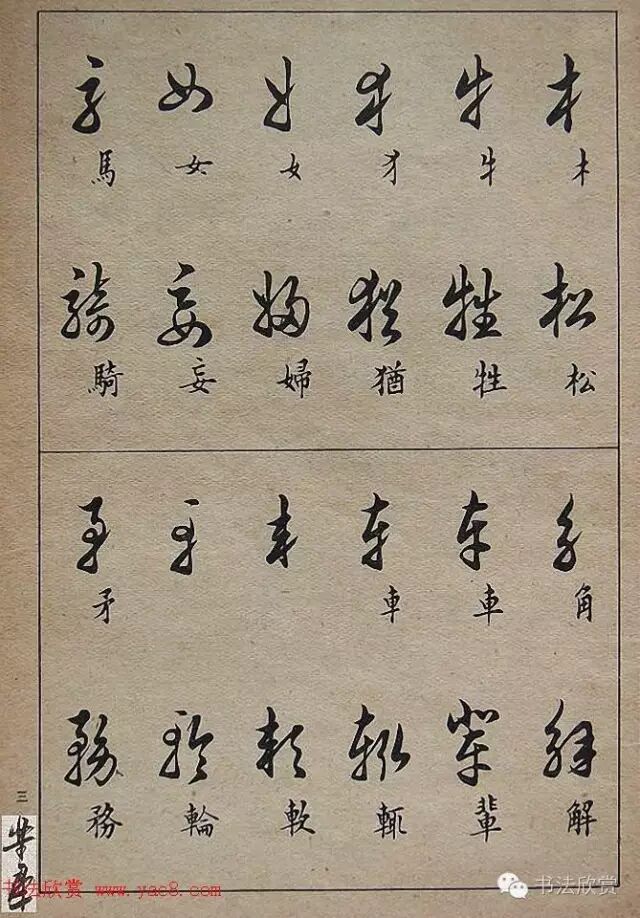 木 牛 犭 女 女 馬
木 牛 犭 女 女 馬
松 牲 猶 婦 妄 騎
松 牲 猶 婦 妄 騎
角 車 車 車 車 矛
角 車 車 矛
解 輩 輒 軟 輪 務
解 輩 輒 軟 輪 務
三
书法欣赏 www.yac8.com
书法欣赏